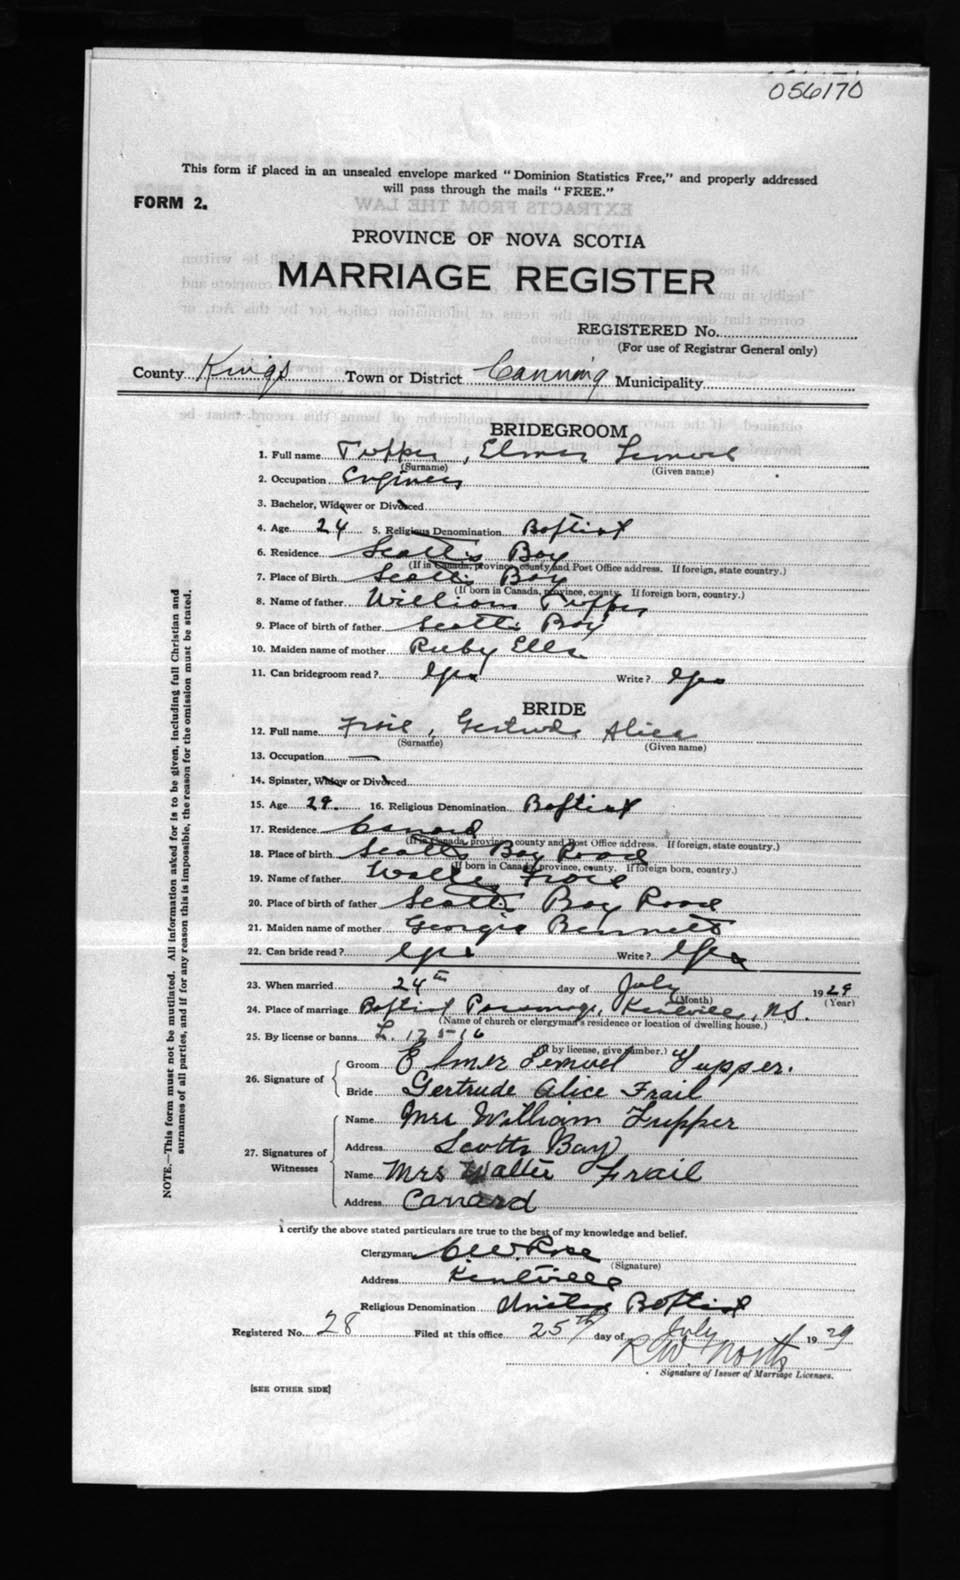 056170
This form if placed in an unsealed envelope marked "Dominion Statistics Free," and properly addressed
will pass through the mails "FREE."
FORM 2.
EXTRACTS FROM THE LAW
PROVINCE OF NOVA SCOTIA
MARRIAGE REGISTER
REGISTERED No.
(For use of Registrar General only)
County Kings Town or District Canning Municipality
BRIDEGROOM
1. Full name Tupper, Elmer Lemuel
(Surname) (Given name)
2. Occupation Engineer
3. Bachelor, Widower or Divorced
4. Age 24 5. Religious Denomination Baptist
6. Residence Scotts Bay
(If in Canada, province, county and Post Office address. If foreign, state country.)
7. Place of Birth Scotts Bay
(If born in Canada, province, county. If foreign born, country.)
8. Name of father William Tupper
9. Place of birth of father Scotts Bay
10. Maiden name of mother Ruby Ells
11. Can bridegroom read? Yes Write? Yes
BRIDE
12. Full name Frail, Gertrude Alice
(Surname) (Given name)
13. Occupation —
14. Spinster, Widow or Divorced
15. Age 29. 16. Religious Denomination Baptist
17. Residence Canard
(If in Canada, province, county and Post Office address. If foreign, state country.)
18. Place of birth Scotts Bay Road
(If born in Canada, province, county. If foreign born, country.)
19. Name of father Walter Frail
20. Place of birth of father Scotts Bay Road
21. Maiden name of mother Georgie Bennett
22. Can bride read? Yes Write? Yes
23. When married 24th day of July 1929
(Month) (Year)
24. Place of marriage Baptist Parsonage, Kentville, N.S.
(Name of church or clergyman's residence or location of dwelling house.)
25. By license or banns L. 12516
(If by license, give number.)
26. Signature of Groom Elmer Lemuel Tupper.
Bride Gertrude Alice Frail
27. Signatures of Witnesses Name Mrs William Tupper
Address Scotts Bay
Name Mrs Walter Frail
Address Canard
I certify the above stated particulars are true to the best of my knowledge and belief.
Clergyman C.W. Rose
(Signature)
Address Kentville
Religious Denomination United Baptist
Registered No. 28 Filed at this office 25th day of July 1929
R W North
Signature of Issuer of Marriage Licenses.
[SEE OTHER SIDE]
NOTE.—This form must not be mutilated. All information asked for is to be given, including full Christian and
surnames of all parties, and if for any reason this is impossible, the reason for the omission must be stated.